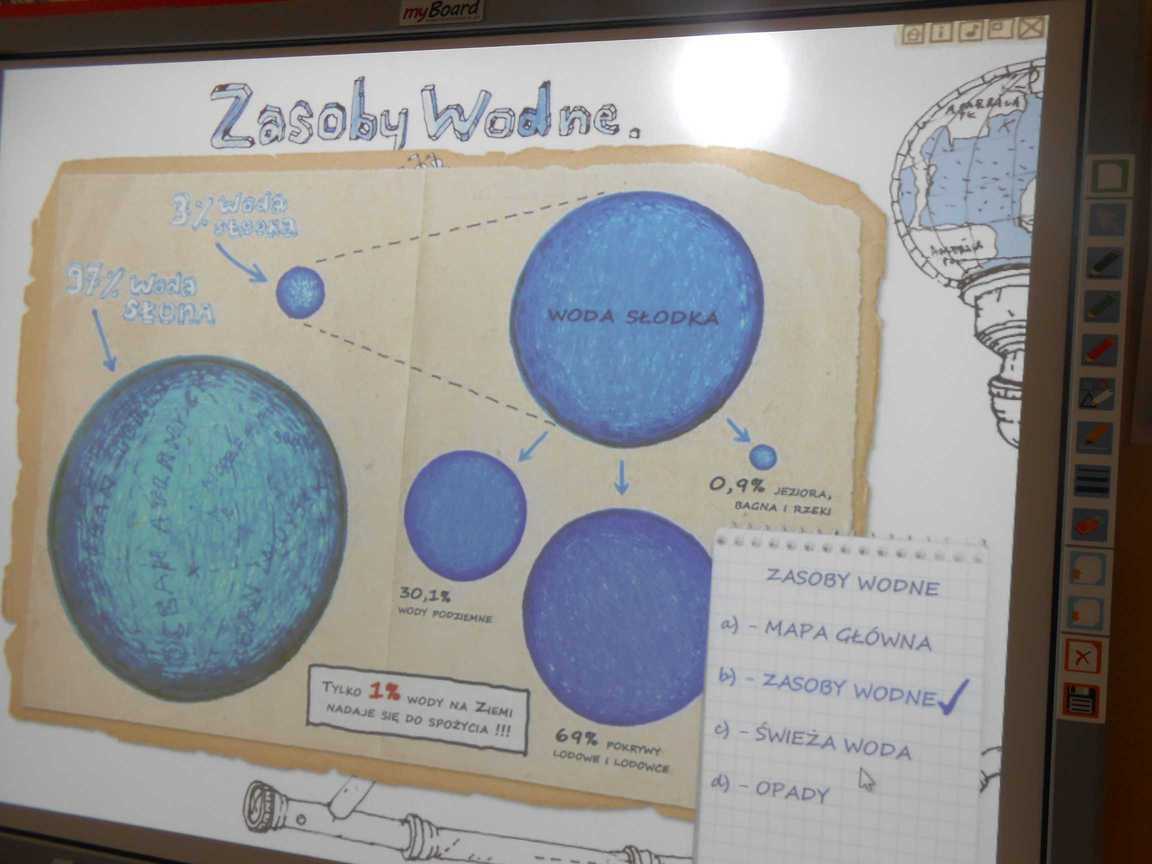 myBoard
Zasoby Wodne.
3% Woda
słodka
97% Woda
SŁONA
WODA SŁODKA
0,9% JEZIORA,
BAGNA I RZEKI
30,1%
WODY PODZIEMNE
TYLKO 1% WODY NA ZIEMI
NADAJE SIĘ DO SPOŻYCIA !!!
69% POKRYWY
LODOWE I LODOWCE
ZASOBY WODNE
a) - MAPA GŁÓWNA
b) - ZASOBY WODNE
c) - ŚWIEŻA WODA
d) - OPADY